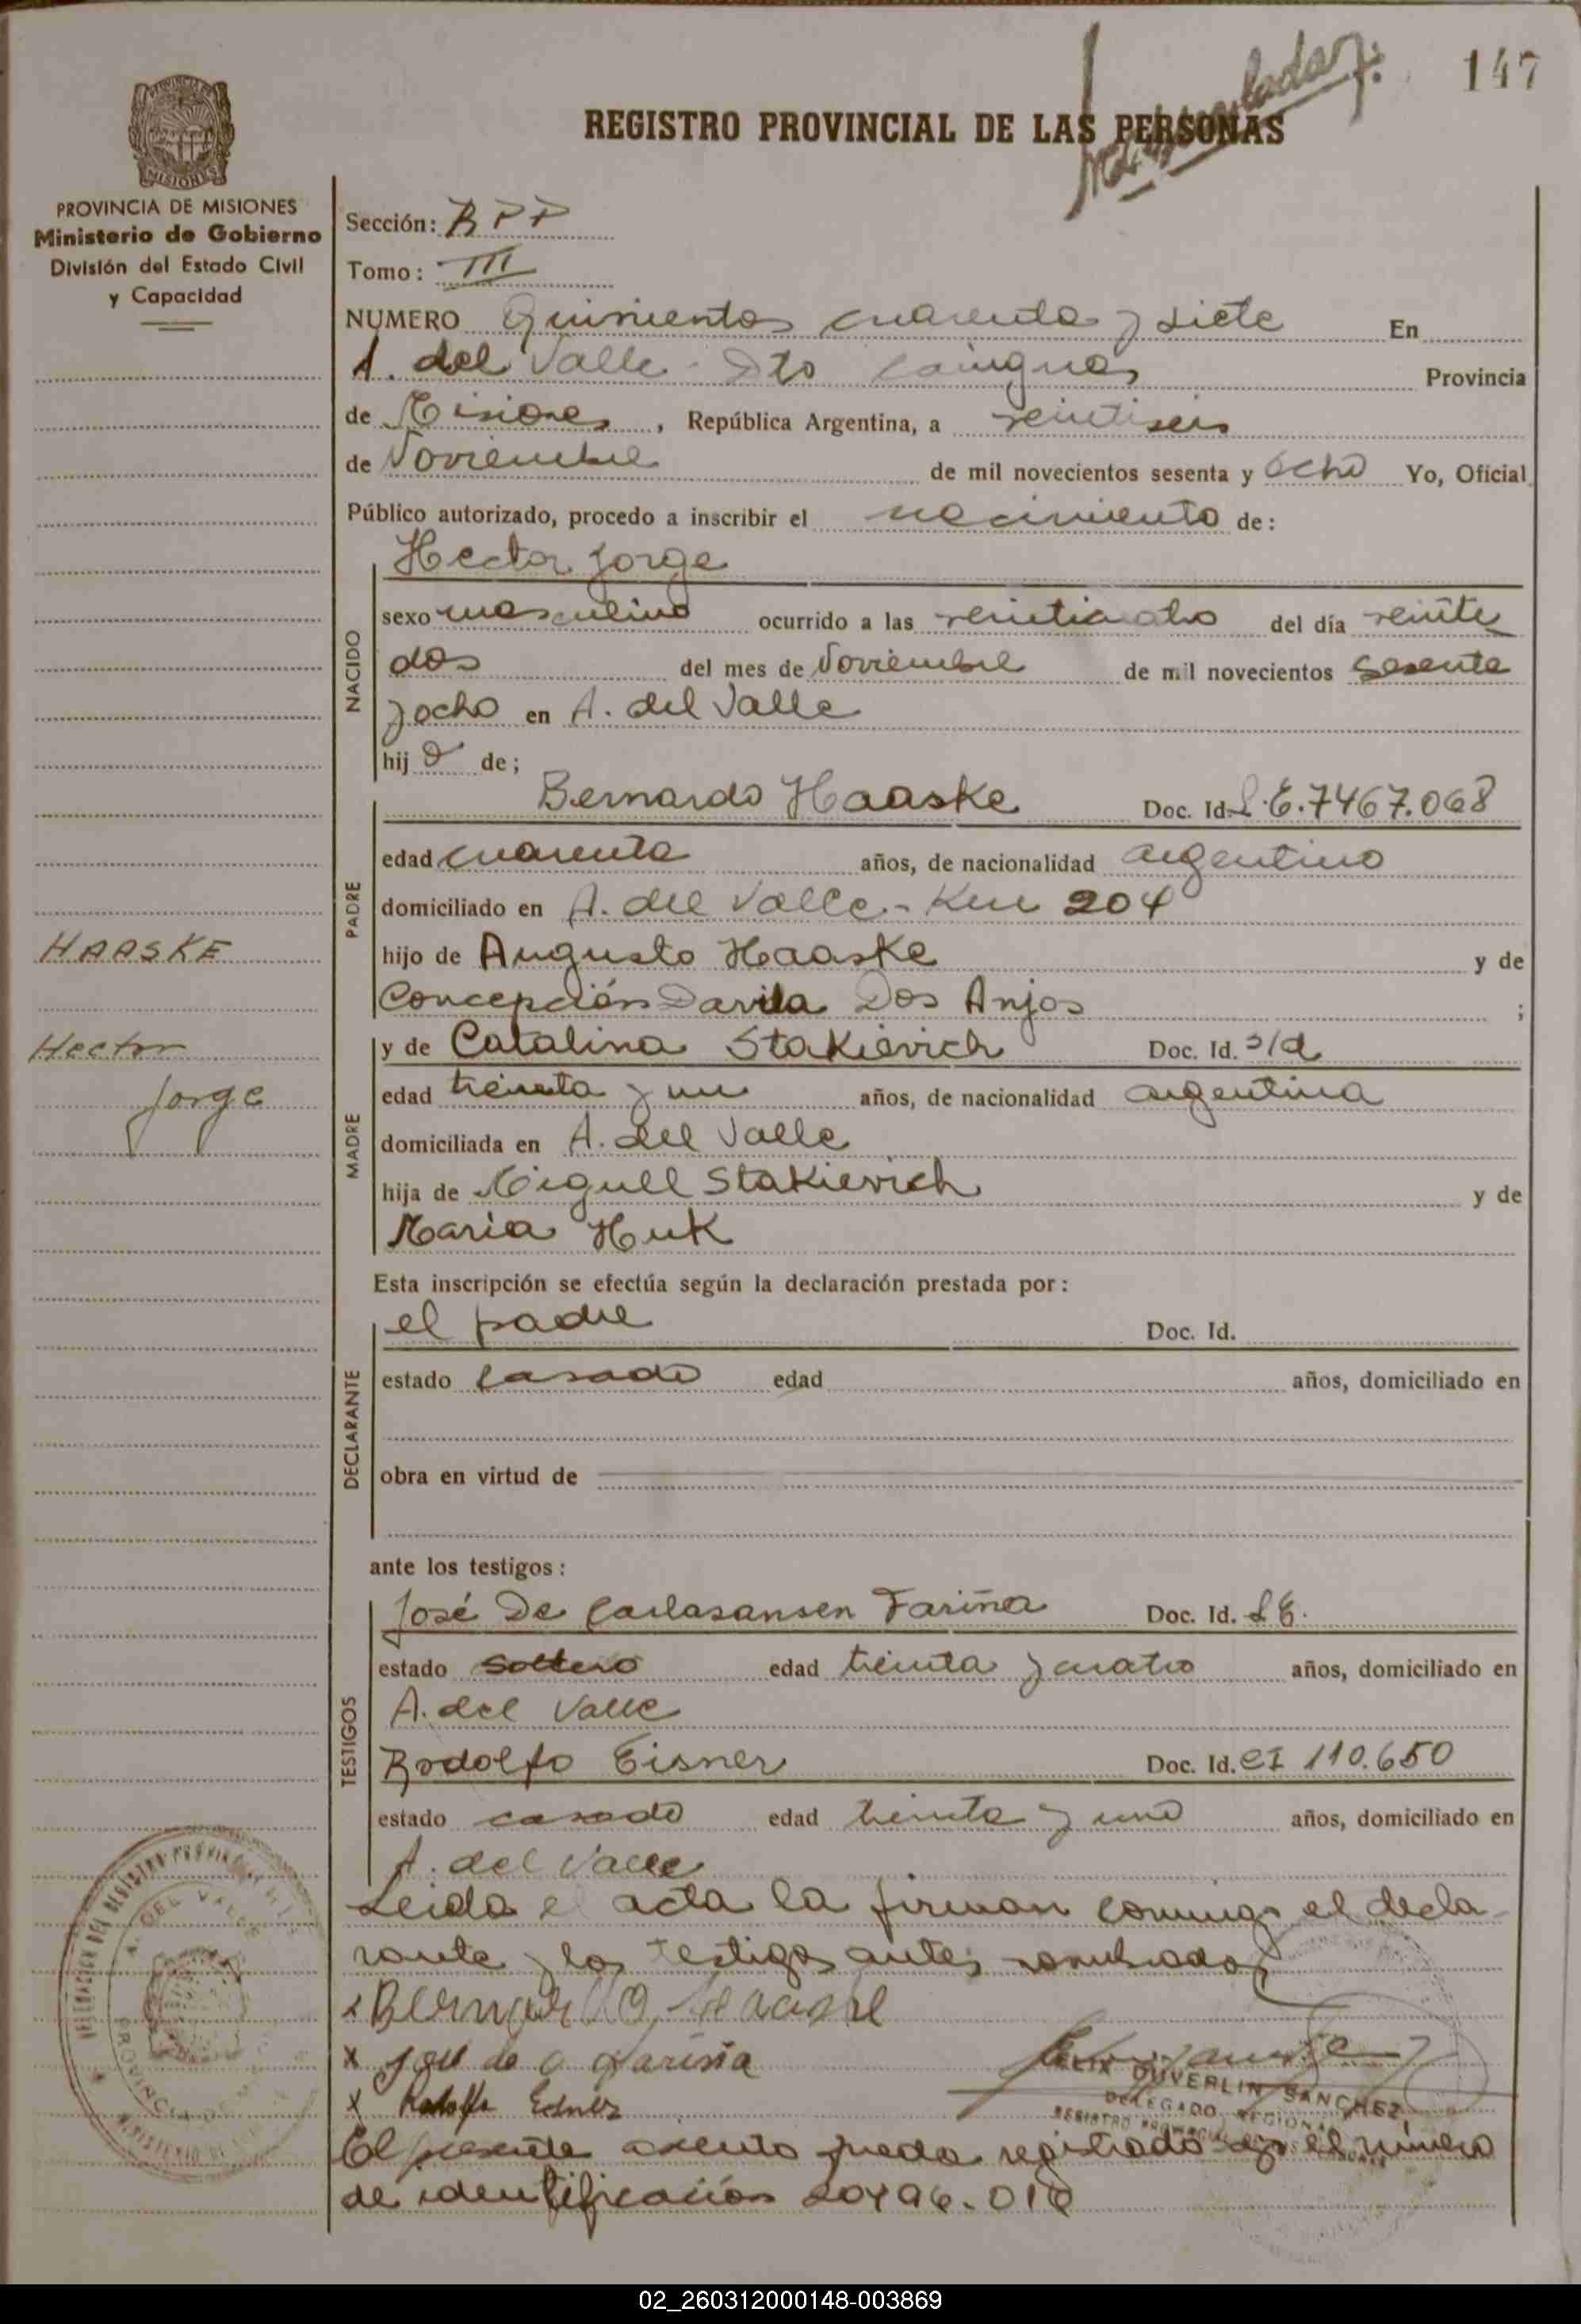 147
REGISTRO PROVINCIAL DE LAS PERSONAS
PROVINCIA DE MISIONES
Ministerio de Gobierno
División del Estado Civil
y Capacidad
MISIONES
Sección: RPP
Tomo: III
NUMERO Quinientos cuarenta y siete En
A. del Valle - Dto Cainguas Provincia
de Misiones, República Argentina, a veintiseis
de Noviembre de mil novecientos sesenta y ocho Yo, Oficial
Público autorizado, procedo a inscribir el nacimiento de:
NACIDO
Hector Jorge
sexo masculino ocurrido a las veinticuatro del día veinte
dos del mes de Noviembre de mil novecientos sesenta
y ocho en A. del Valle
hijo de;
PADRE
Bernardo Haaske Doc. Id. L.E. 7467.068
edad cuarenta años, de nacionalidad argentino
domiciliado en A. del Valle - Km 204
hijo de Augusto Haaske y de
Concepción Davila Dos Anjos ;
HAASKE
Hector
Jorge
MADRE
y de Catalina Stakievich Doc. Id. s/d
edad treinta y un años, de nacionalidad argentina
domiciliada en A. del Valle
hija de Miguell Stakievich y de
Maria Huk
Esta inscripción se efectúa según la declaración prestada por:
DECLARANTE
el padre Doc. Id.
estado casado edad años, domiciliado en
obra en virtud de
ante los testigos:
TESTIGOS
José De Carlasansen Fariña Doc. Id. L E.
estado soltero edad treinta y cuatro años, domiciliado en
A. del Valle
Rodolfo Eisner Doc. Id. CI 110.650
estado casado edad treinta y uno años, domiciliado en
A. del Valle
Leida el acta la firman conmigo el decla-
rante y los testigos antes nombrados
x Bernardo Haaske
x José de C Fariña
x Rodolfo Eisner
DUVERLIN SANCHEZ
DELEGADO REGIONAL
El presente asento queda registrado bajo el número
de identificación 20496.010
02_260312000148-003869